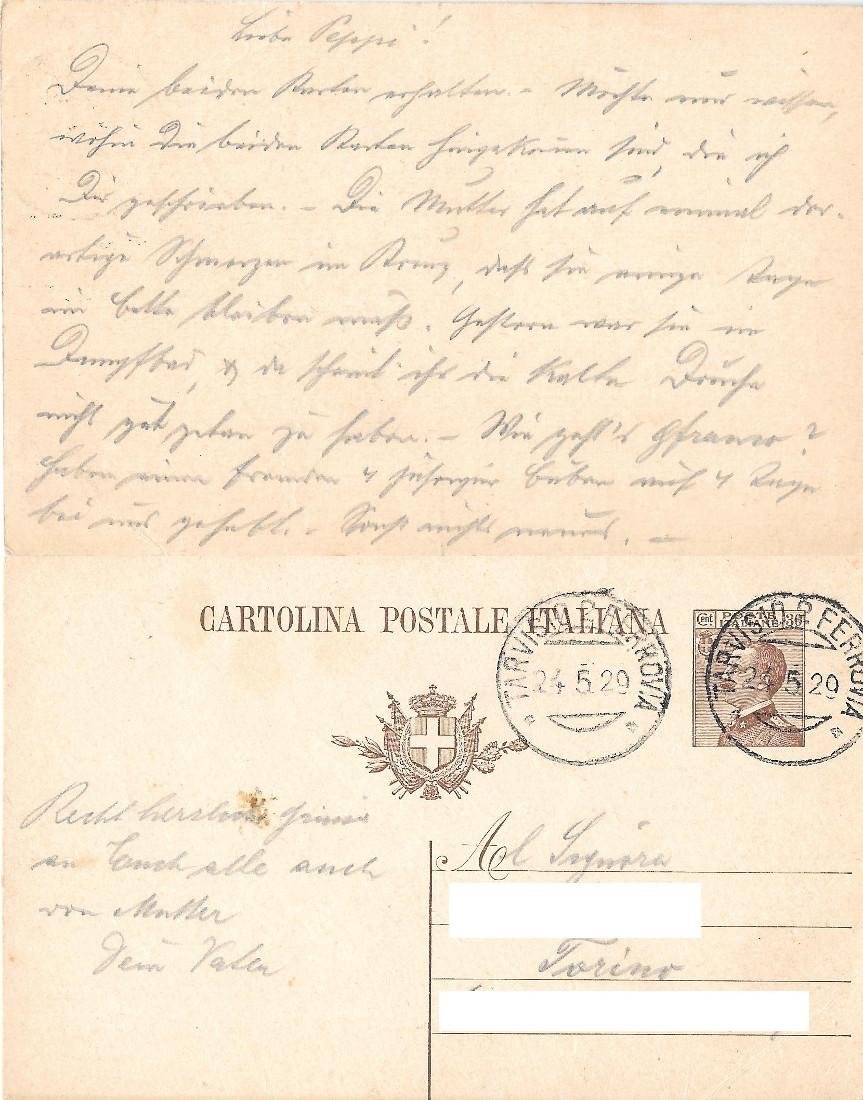 Liebe Peppi!
Deine beiden Karten erhalten. – Möchte nur wissen,
wohin die beiden Karten hingekommen sind, die ich
Dir geschrieben. – Die Mutter hat auf einmal der-
artige Schmerzen im Kreuz, dass sie einige Tage
im Bette bleiben muß. Gestern war sie im
Dampfbad, & da scheint ihr die kalte Douche
nicht gut getan zu haben. – Wie geht's ?
Haben einen fremden 4 jährigen Buben auf 4 Tage
bei uns gehabt. – Sonst nichts neues. –
CARTOLINA POSTALE ITALIANA
Cent POSTE ITALIANE 30
TARVISIO P. FERROVIA
24.5.29
TARVISIO P. FERROVIA
24.5.29
Recht herzliche Grüße
an Euch alle auch
von Mutter
Dein Vater
Al Signora
Torino